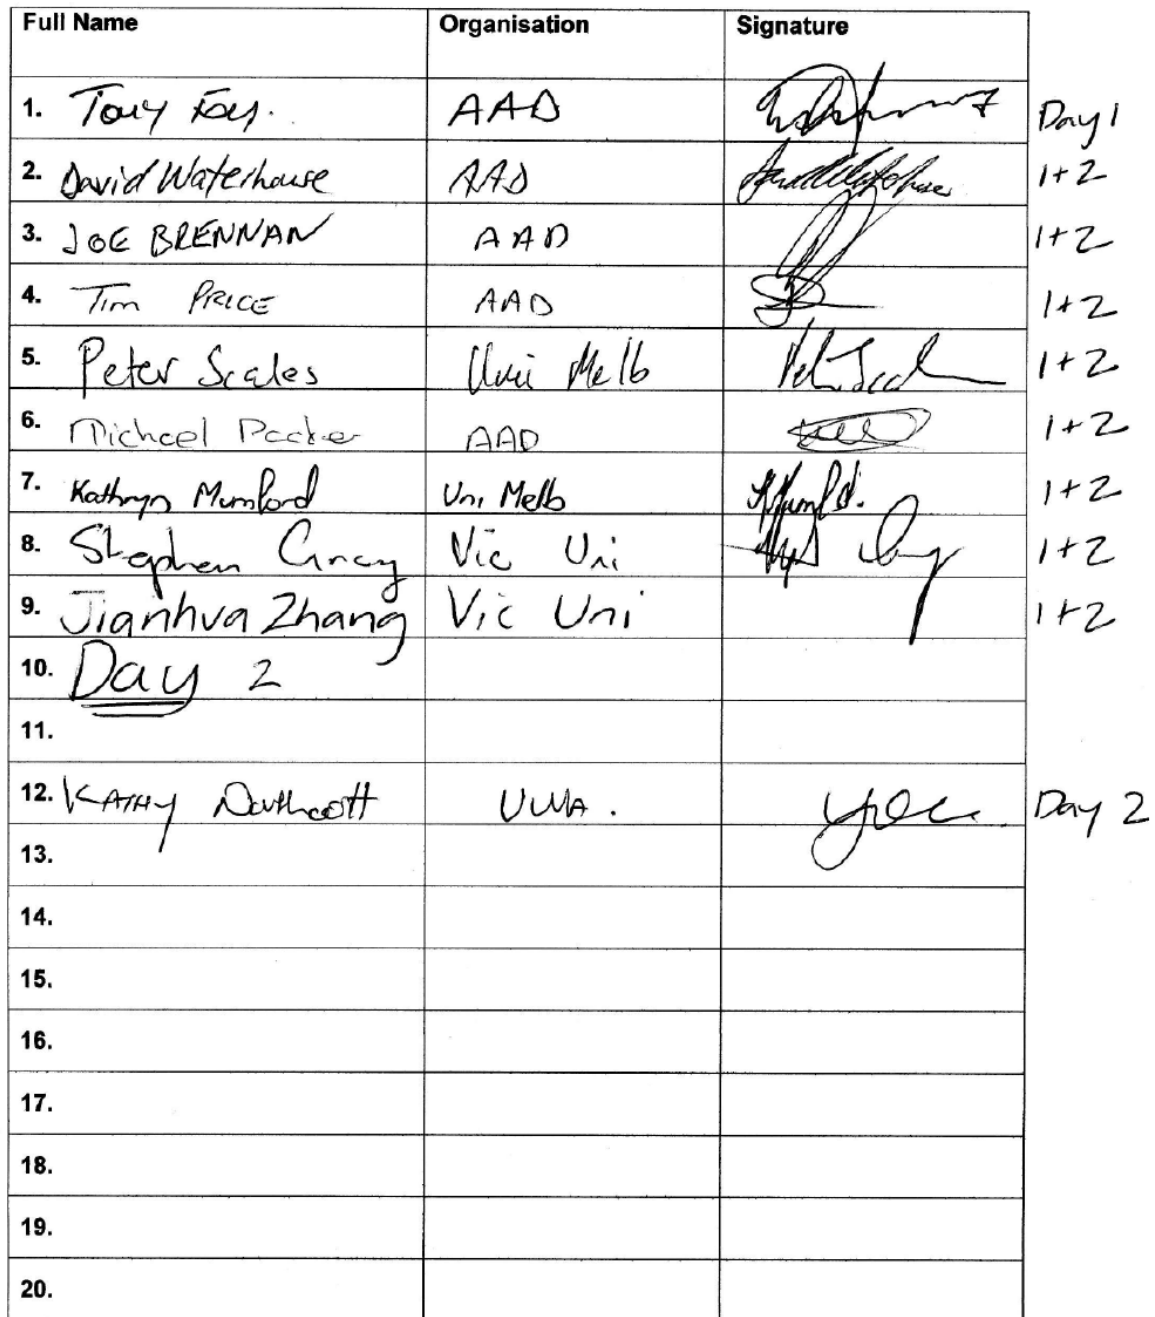 Full Name Organisation Signature
1. Tony Foy. AAD Day 1
2. David Waterhouse AAD 1+2
3. JOE BRENNAN AAD 1+2
4. Tim PRICE AAD 1+2
5. Peter Scales Uni Melb 1+2
6. Michael Packer AAD 1+2
7. Kathryn Mumford Uni Melb 1+2
8. Stephen Gray Vic Uni 1+2
9. Jianhua Zhang Vic Uni 1+2
10. Day 2
11.
12. KATHY Northcott UWA. Day 2
13.
14.
15.
16.
17.
18.
19.
20.